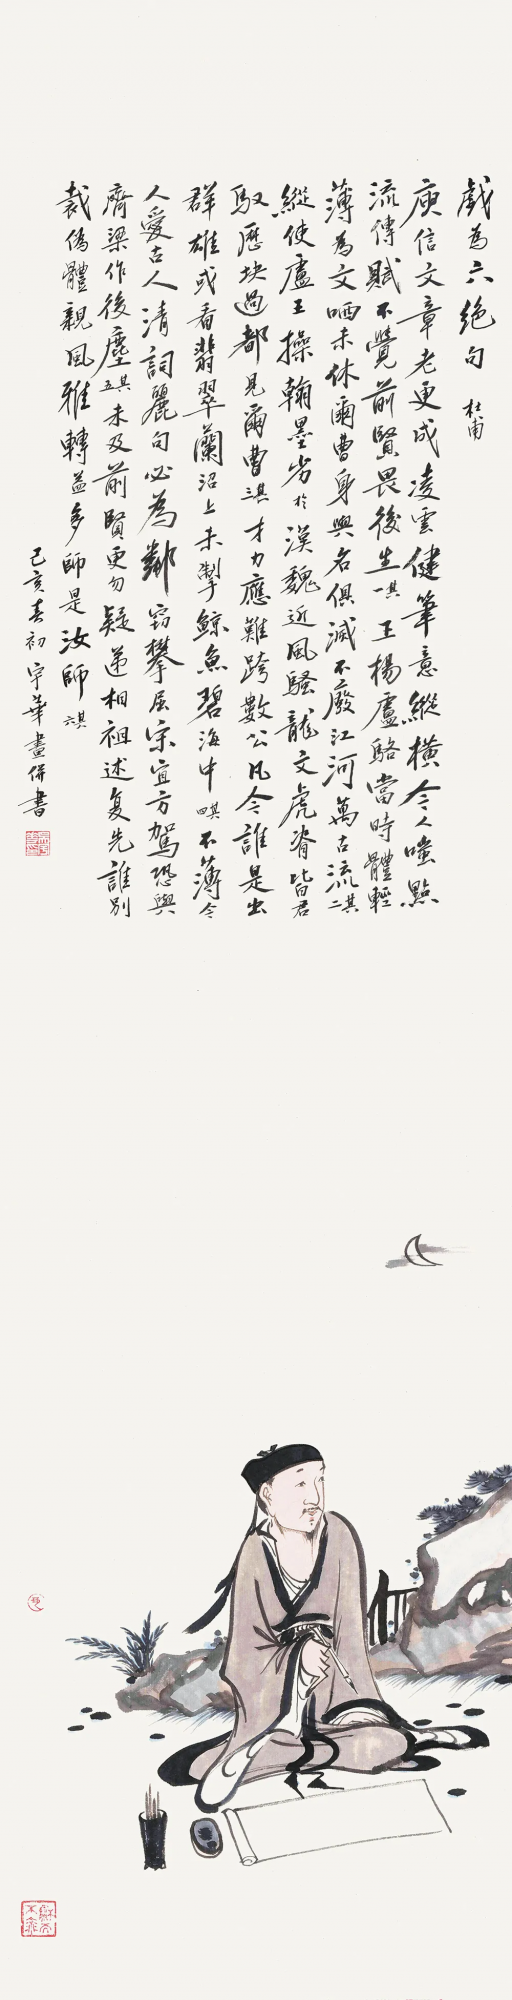 戲為六絕句 杜甫
庾信文章老更成凌雲健筆意縱橫今人嗤點
流傳賦不覺前賢畏後生其一王楊盧駱當時體輕
薄為文哂未休爾曹身與名俱滅不廢江河萬古流其二
縱使盧王操翰墨劣於漢魏近風騷龍文虎脊皆君
馭歷塊過都見爾曹其三才力應難跨數公凡今誰是出
群雄或看翡翠蘭沼上未掣鯨魚碧海中其四不薄今
人愛古人清詞麗句必為鄰竊攀屈宋宜方駕恐與
齊梁作後塵其五未及前賢更勿疑遞相祖述复先誰別
裁偽體親風雅轉益多師是汝師其六
己亥春初宇華畫併書